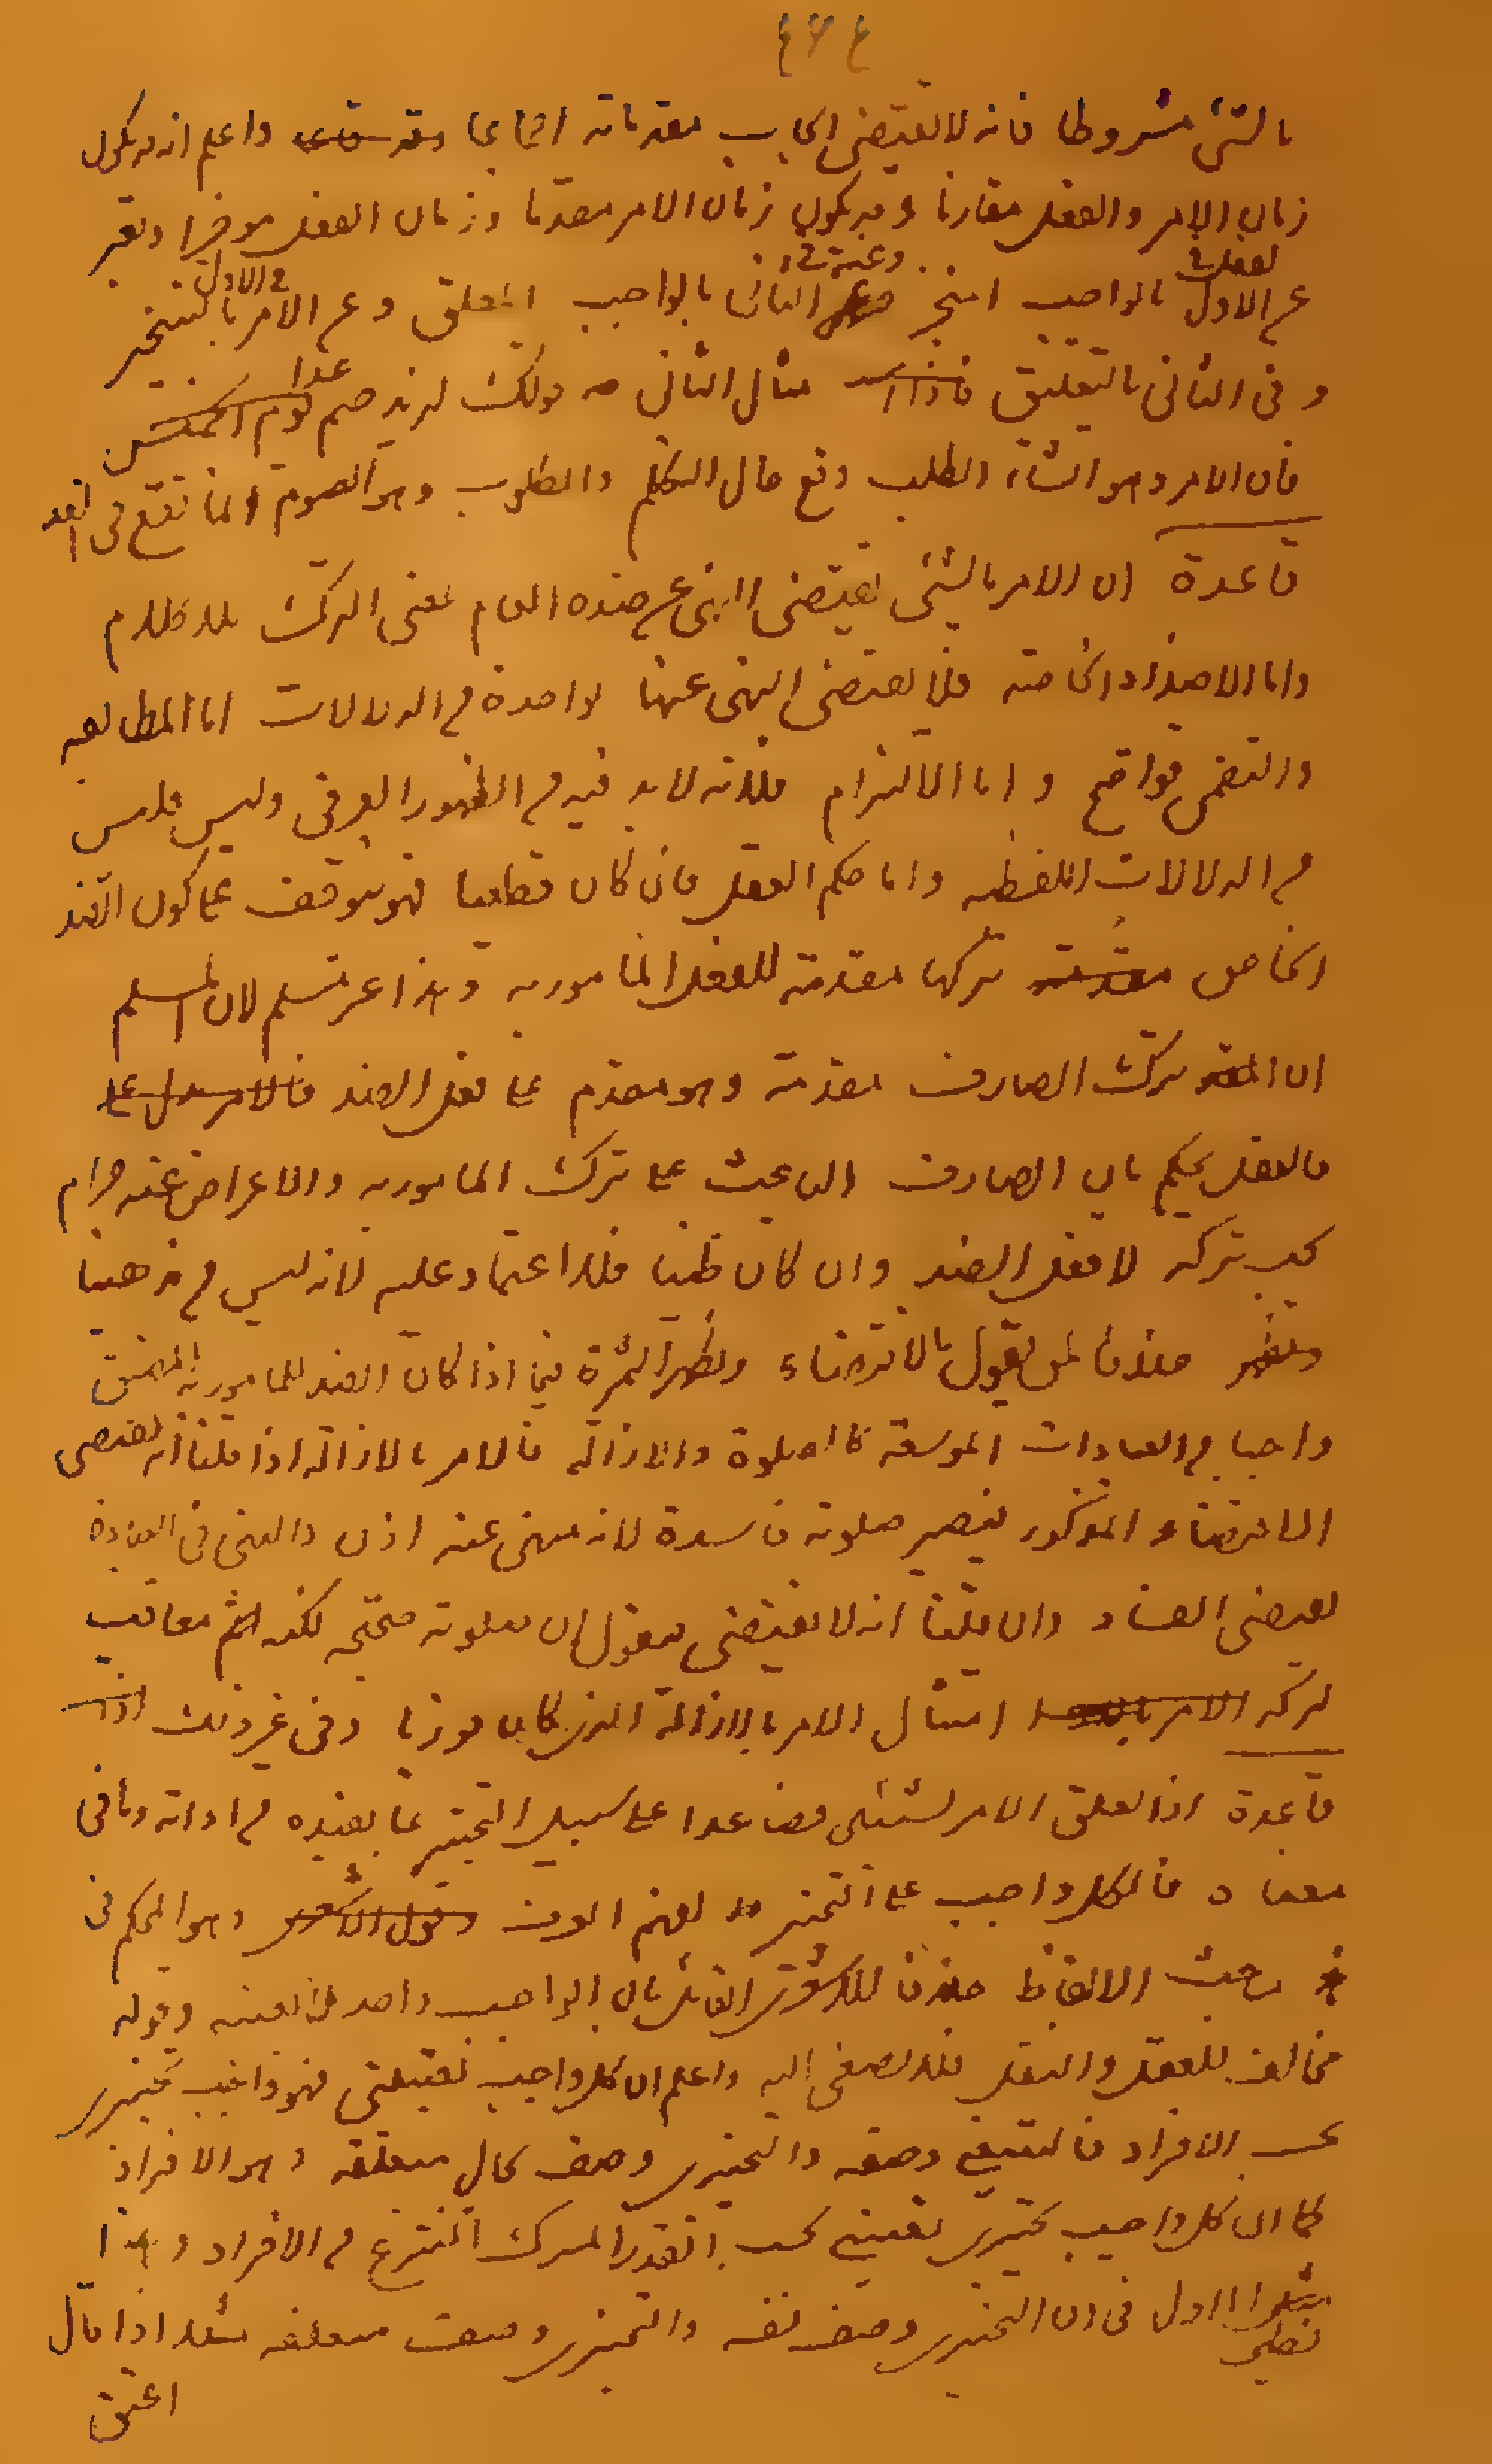 بالشئ مشروطا فانه لا يقتضى ايجاب مقدماته اجماعا واعلم انه قد يكون
زمان الامر والفعل مقارنا وقد يكون زمان الامر مقدما وزمان الفعل موخرا ويعبر
عن الاول بالواجب المنجز وعن الثانى بالواجب المعلق وعن الامر فى الاول بالتنجيز
وفى الثانى بالتعليق مثال الثانى قولك لزيد صم غدا
فان الامر وهو انشاء الطلب وقع حال التكلم والمطلوب وهو الصوم انما يقع فى الغد
قاعدة ان الامر بالشئ يقتضى النهى عن ضده العام بمعنى الترك بلا كلام
واما الاضداد الخاصة فلا يقتضى النهى عنها بواحدة من الدلالات اما المطابقه
والتضمن فواضح واما الالتزام فلانه لابد فيه من الظهور العرفى وليس فليس
من الدلالات اللفظيه واما حكم العقل فان كان قطعيا فهو موقوف على كون الضد
الخاص تركها مقدمة للفعل المامور به وهذا غير مسلم لان المسلم
ان ترك الصارف مقدمة وهو مقدم على فعل الضد
فالعقل يحكم بان الصارف الباعث على ترك المامور به والاعراض عنه حرام
يجب تركه لا فعل الضد وان كان ظنيا فلا اعتماد عليه لانه ليس من مذهبنا
خلافا لمن يقول بالاقتضاء وتظهر الثمرة فيما اذا كان الضد للمامور به المضيق
واجبا من العبادات الموسعة كالصلوة والازالة فالامر بالازالة اذا قلنا انه يقتضى
الاقتضاء المذكور فيصير صلوته فاسدة لانه منهى عنه اذن والنهى فى العبادة
يقتضى الفساد وان قلنا انه لا يقتضى فنقول ان صلوته صحيحه لكنه اثم معاقب
لتركه امتثال الامر بالازالة الذى كان فوريا وفى غير ذلك
قاعدة اذا تعلق الامر بشيئين فصاعدا على سبيل التخيير بما يفيده من ادائه وما فى
معناه فالكل واجب على التخيير لفهم العرف وهو المحكم فى
مباحث الالفاظ خلافا للاشعرى القائل بان الواجب واحد لا بعينه وقوله
مخالف للعقل والنقل فلا يصغى اليه واعلم ان كل واجب تعيينى فهو واجب تخييرى
بحسب الافراد فالتعيينى وصفه والتخييرى وصف بحال متعلقه وهو الافراد
كما ان كل واجب تخييرى تعيينى بحسب القدر المشترك المنتزع من الافراد وهذا
نظير الاول فى ان التخييرى وصف نفسه والتخييرى وصف متعلقه مثلا اذا قال
اعتق